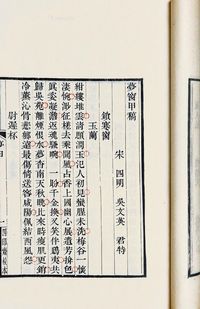 夢窗甲稿
宋 四明 吳文英 君特
鎖寒窗
玉蘭
紺縷堆雲清腮潤玉汜人初見蠻腥未洗梅谷一懷
淒惋渺征槎去乘閬風占香上國幽心展遺芳掩色
真恣凝澹返魂騷畹 一盼千金換又笑伴鴟夷共
歸吳苑離煙恨水夢杳南天秋晚比來時瘦肌更銷
冷薰沁骨悲鄉遠最傷情送客咸陽佩結西風怨
尉遲杯
一